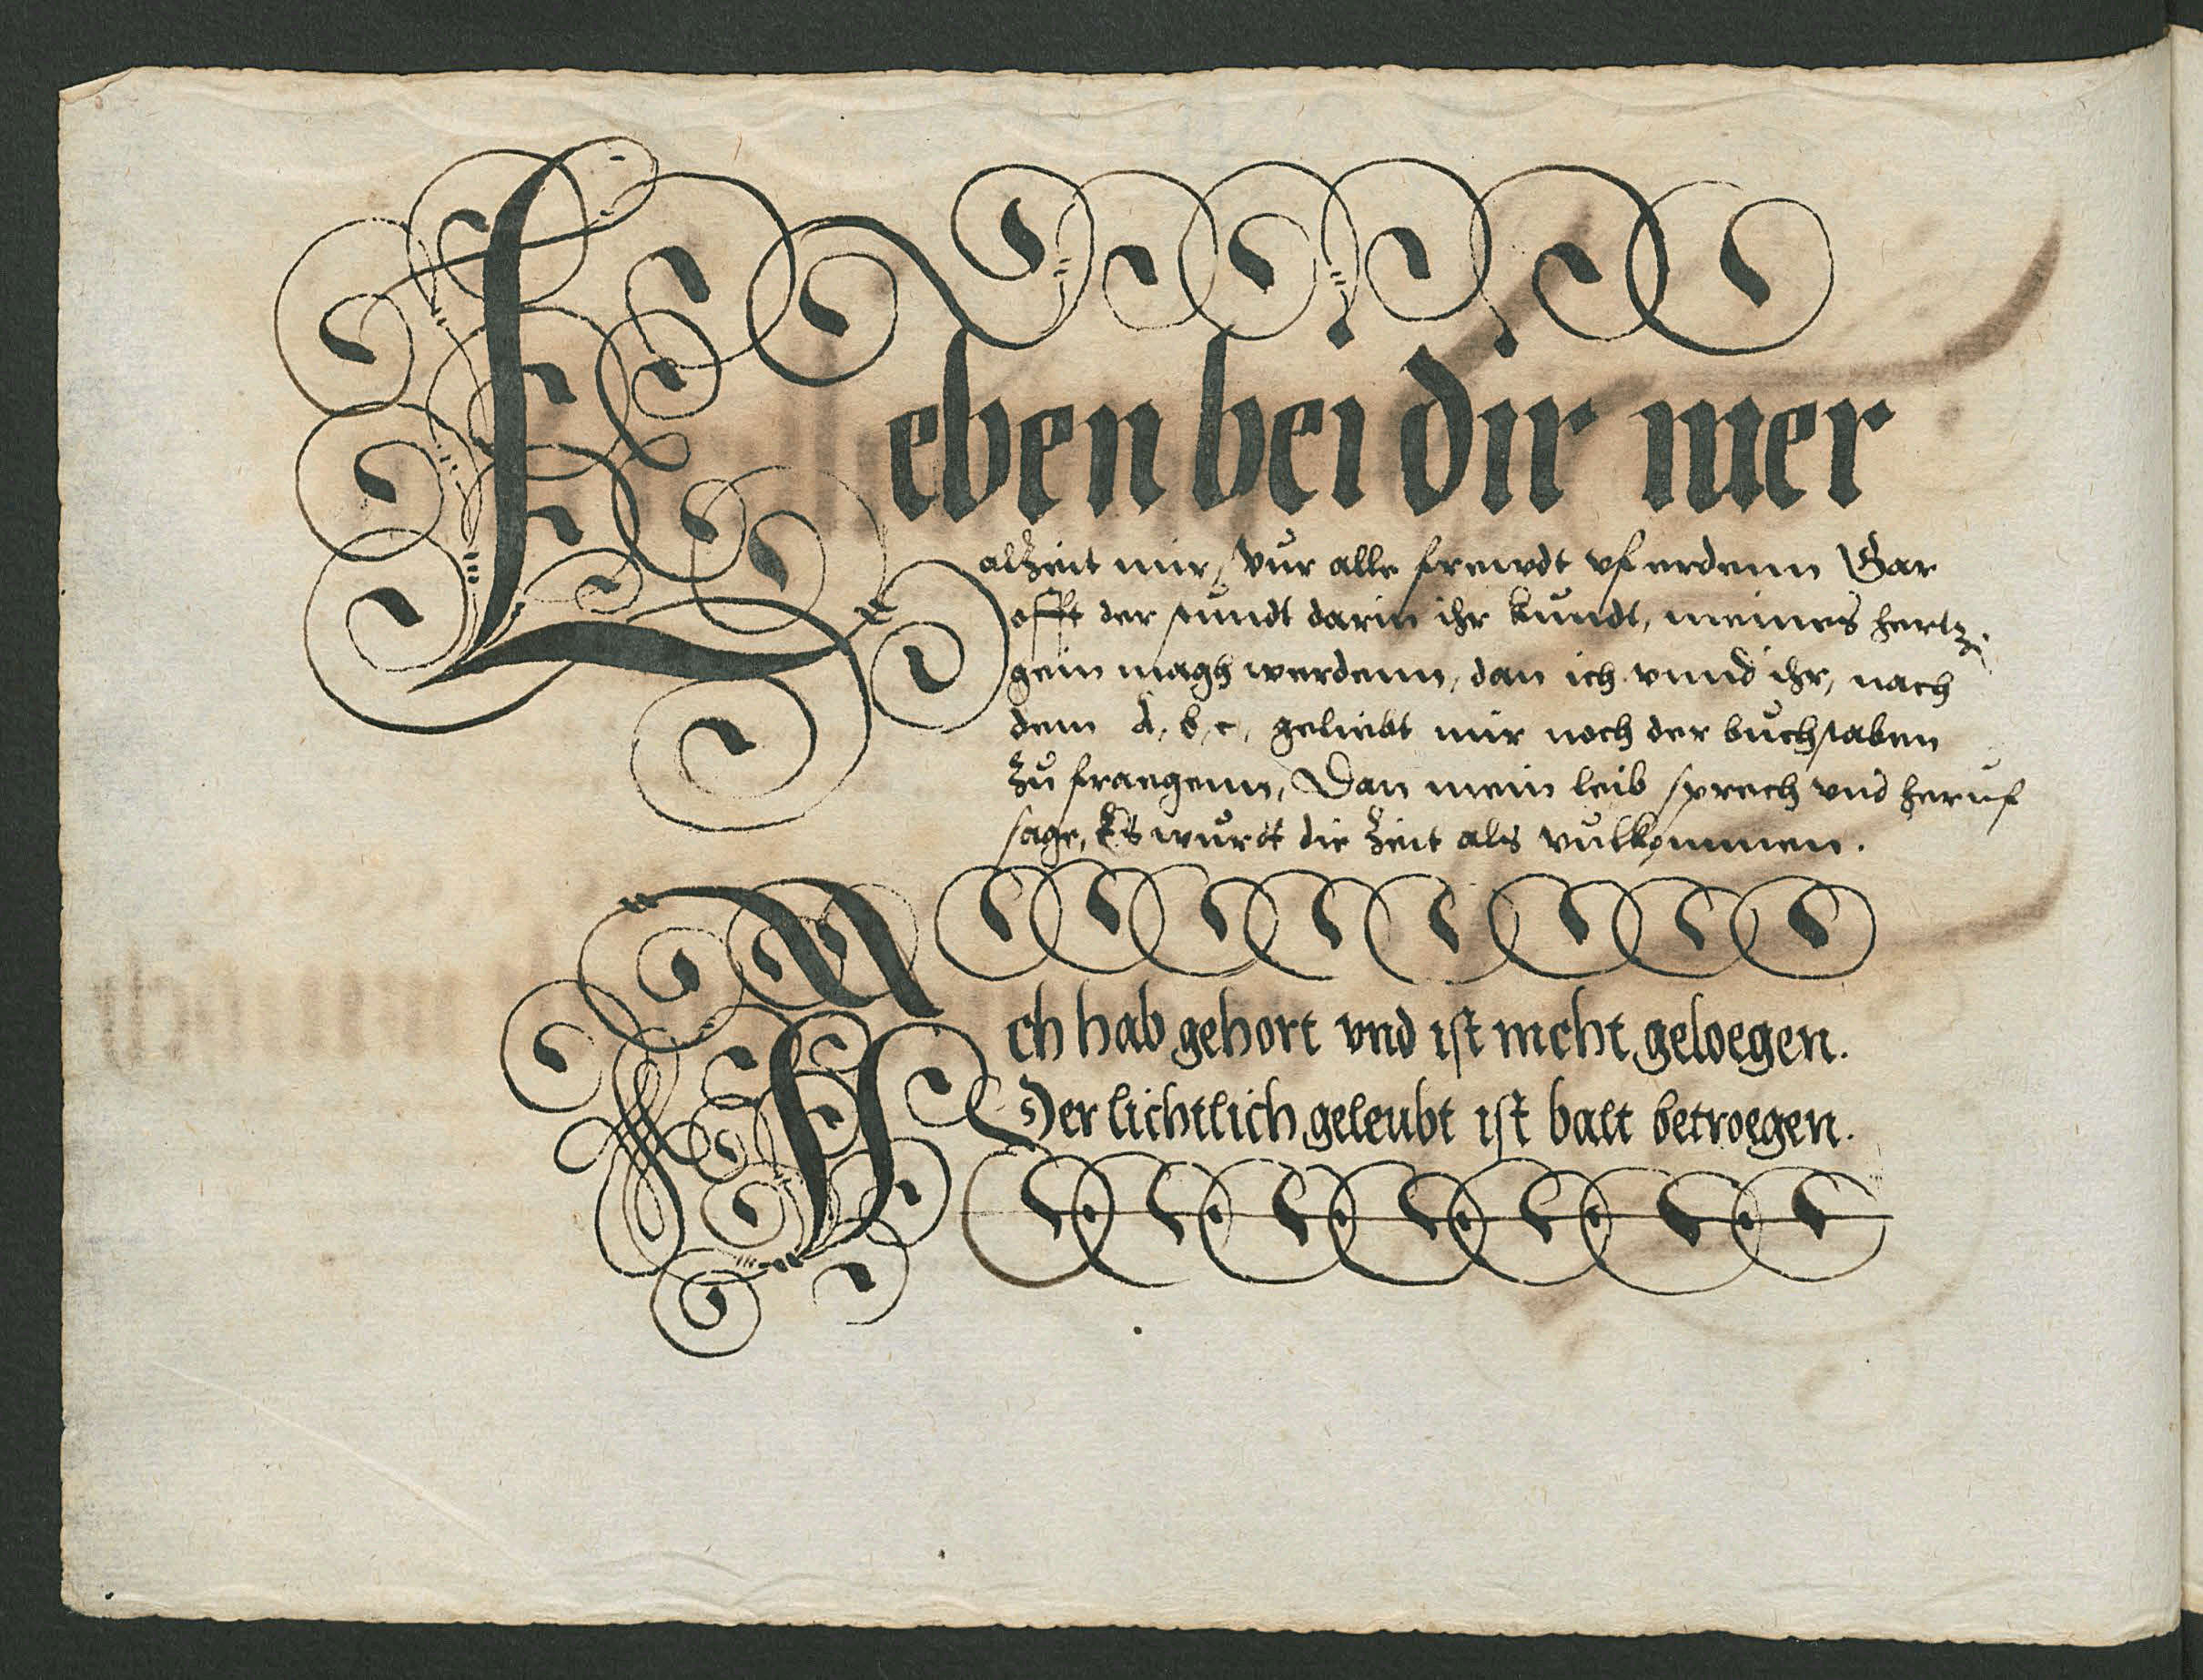 Leben bei dir mer
alzeit mir, vur alle frewdt vf erdenn Gar
offt der stundt darin ihr kundt, meines hertz.
gein magh werdenn, dan ich vnnd ihr, nach
dem A, b, c, geliebt mir noch der buchstaben
zu fraegenn, Dan mein leib sprech vnd heruf
sage, Es wurtt die zeit als vulkommen.
Ich hab gehort vnd ist nicht geloegen.
Der lichtlich geleubt ist balt betroegen.